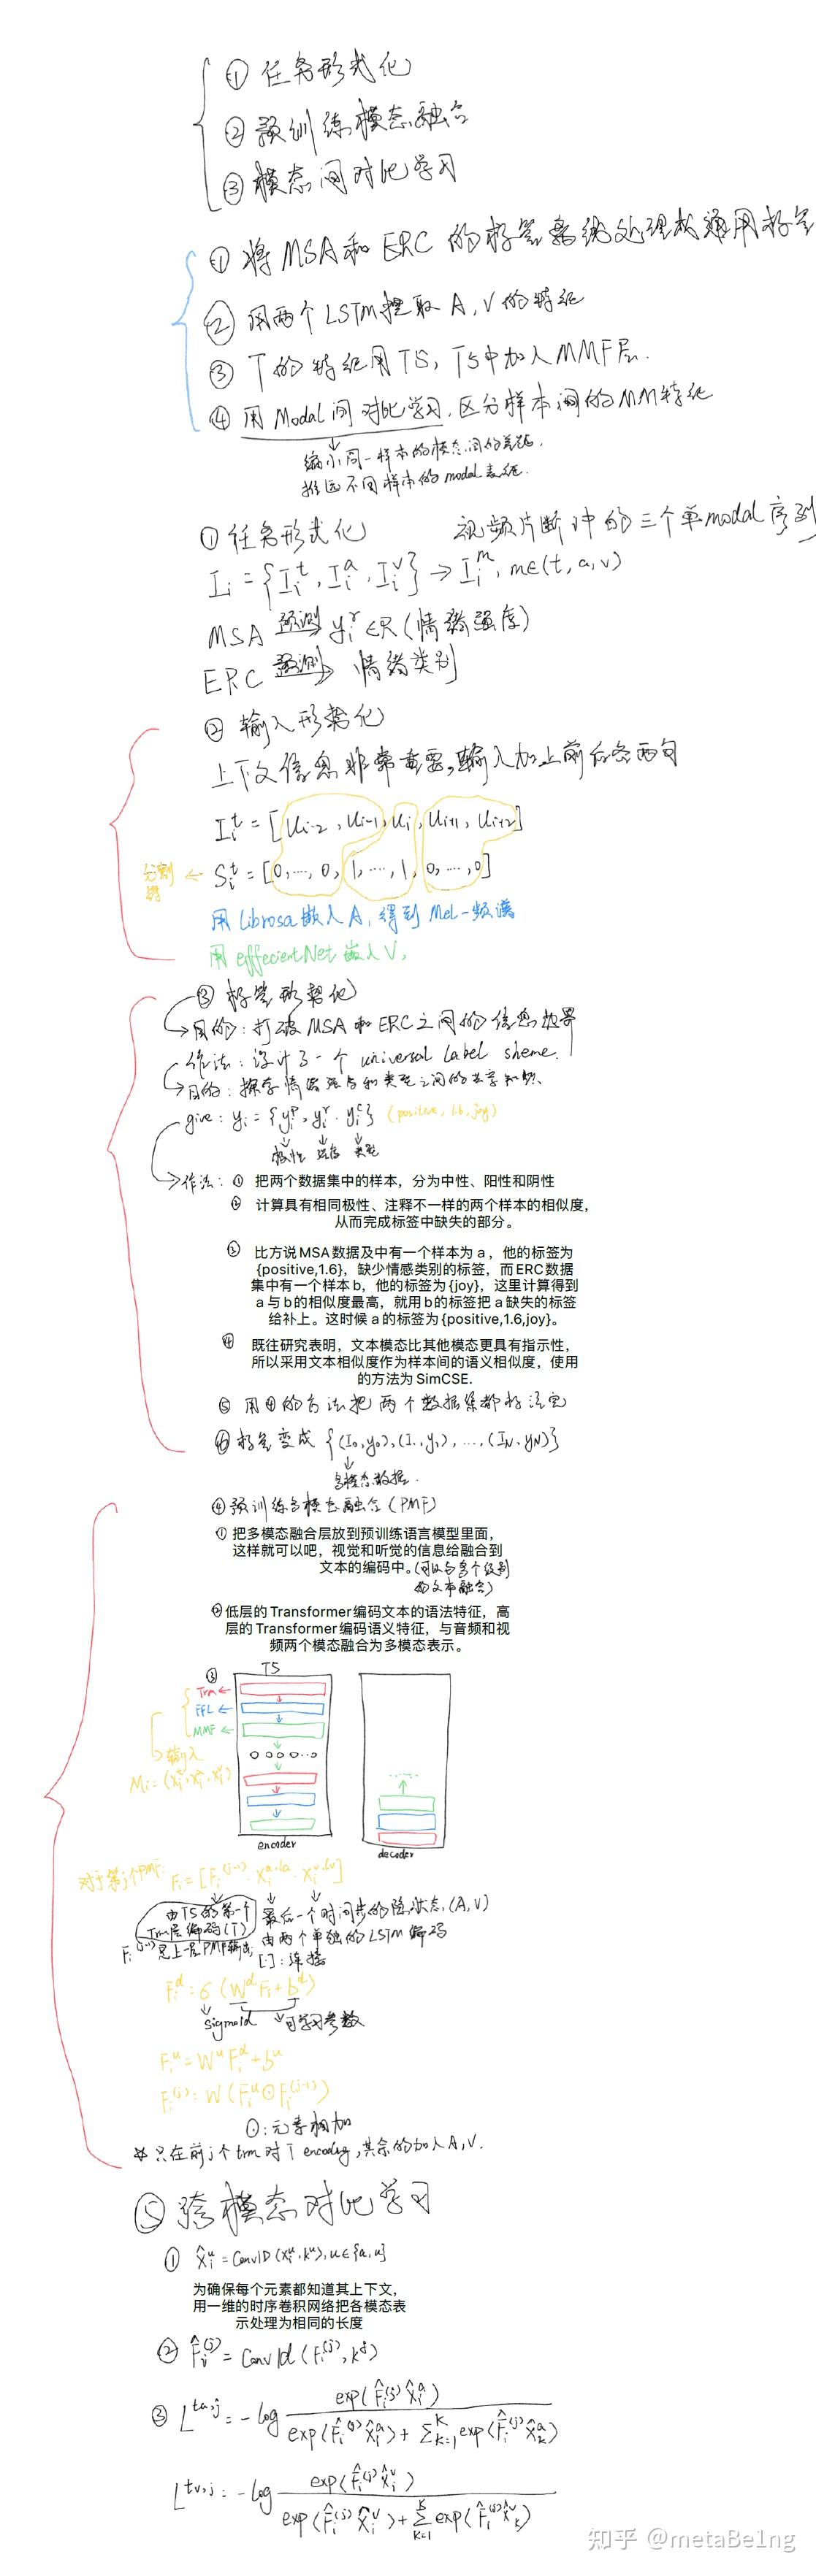 ① 任务形式化
② 预训练模态融合
③ 模态间对比学习
① 将MSA和ERC的标签离线处理成通用标签
② 用两个LSTM提取A,V的特征
③ T的特征用T5,T5中加入MMF层.
④ 用Modal间对比学习,区分样本间的MM特征
缩小同一样本的模态间的差距.
推远不同样本的modal表征.
① 任务形式化 视频片断i中的三个单modal序列
Iᵢ = {Iᵢᵗ, Iᵢᵃ, Iᵢᵛ} → Iᵢᵐ, m∈(t,a,v)
MSA 预测→ yᵢʳ∈R(情绪强度)
ERC 预测→ 情绪类别
② 输入形式化
上下文信息非常重要,输入加上前后各两句
Iᵢᵗ = [uᵢ₋₂, uᵢ₋₁, uᵢ, uᵢ₊₁, uᵢ₊₂]
分割 ← Sᵢᵗ = [0,…,0, 1,…,1, 0,…,0]
用Librosa嵌入A,得到Mel-频谱
用effecientNet嵌入V,
③ 标签形式化
目的:打破MSA和ERC之间的信息边界
作法:设计了一个universal label sheme.
目的:探索情绪强度和类型之间的共享知识、
give: yᵢ = {yᵢᵖ, yᵢʳ, yᵢᶜ} (positive, 1.6, joy)
极性 强度 类别
作法: ① 把两个数据集中的样本,分为中性、阳性和阴性
② 计算具有相同极性、注释不一样的两个样本的相似度,
从而完成标签中缺失的部分。
③ 比方说MSA数据及中有一个样本为a,他的标签为
{positive,1.6},缺少情感类别的标签,而ERC数据
集中有一个样本b,他的标签为{joy},这里计算得到
a与b的相似度最高,就用b的标签把a缺失的标签
给补上。这时候a的标签为{positive,1.6,joy}。
④ 既往研究表明,文本模态比其他模态更具有指示性,
所以采用文本相似度作为样本间的语义相似度,使用
的方法为SimCSE.
⑤ 用④的方法把两个数据集都标注完
⑥ 标签变成 {(I₀,y₀),(I₁,y₁),…,(I_N,y_N)}
多模态数据.
④ 预训练多模态融合(PMF)
① 把多模态融合层放到预训练语言模型里面,
这样就可以吧,视觉和听觉的信息给融合到
文本的编码中。(可以与各个级别
的文本融合)
② 低层的Transformer编码文本的语法特征,高
层的Transformer编码语义特征,与音频和视
频两个模态融合为多模态表示。
③ T5
Trm ←
FFL ←
MMF ←
输入
Mᵢ = (Xᵢᵗ, Xᵢᵃ, Xᵢᵛ)
encoder
decoder
对于第j个PMF: Fᵢ = [Fᵢ⁽ʲ⁻¹⁾ · Xᵢᵃ,ˡᵃ · Xᵢᵛ,ˡᵛ]
由T5的第一个 最后一个时间步的隐状态.(A,V)
Trm层编码(T) 由两个单独的LSTM编码
Fᵢ⁽ʲ⁻¹⁾是上一层PMF输出 [·]:连接
Fᵢᵈ = σ(WᵈFᵢ+bᵈ)
sigmoid 可学习参数
Fᵢᵘ = WᵘFᵢᵈ+bᵘ
Fᵢ⁽ʲ⁾ = W(Fᵢᵘ⊙Fᵢ⁽ʲ⁻¹⁾)
⊙:元素相加
* 只在前j个trm对T encoding,其余的加入A,V.
⑤ 跨模态对比学习
① X̂ᵢᵘ = Conv1D(Xᵢᵘ, kᵘ), u∈{a,u}
为确保每个元素都知道其上下文,
用一维的时序卷积网络把各模态表
示处理为相同的长度
② F̂ᵢ⁽ʲ⁾ = Conv1d(Fᵢ⁽ʲ⁾, kᶠ)
③ L^{ta,j} = -log exp(F̂ᵢ⁽ʲ⁾X̂ᵢᵃ) / (exp(F̂ᵢ⁽ʲ⁾X̂ᵢᵃ) + Σ_{k=1}^{K} exp(F̂ᵢ⁽ʲ⁾X̂ₖᵃ))
L^{tv,j} = -log exp(F̂ᵢ⁽ʲ⁾X̂ᵢᵛ) / (exp(F̂ᵢ⁽ʲ⁾X̂ᵢᵛ) + Σ_{k=1}^{K} exp(F̂ᵢ⁽ʲ⁾X̂ₖᵛ))
知乎 @metaBe1ng